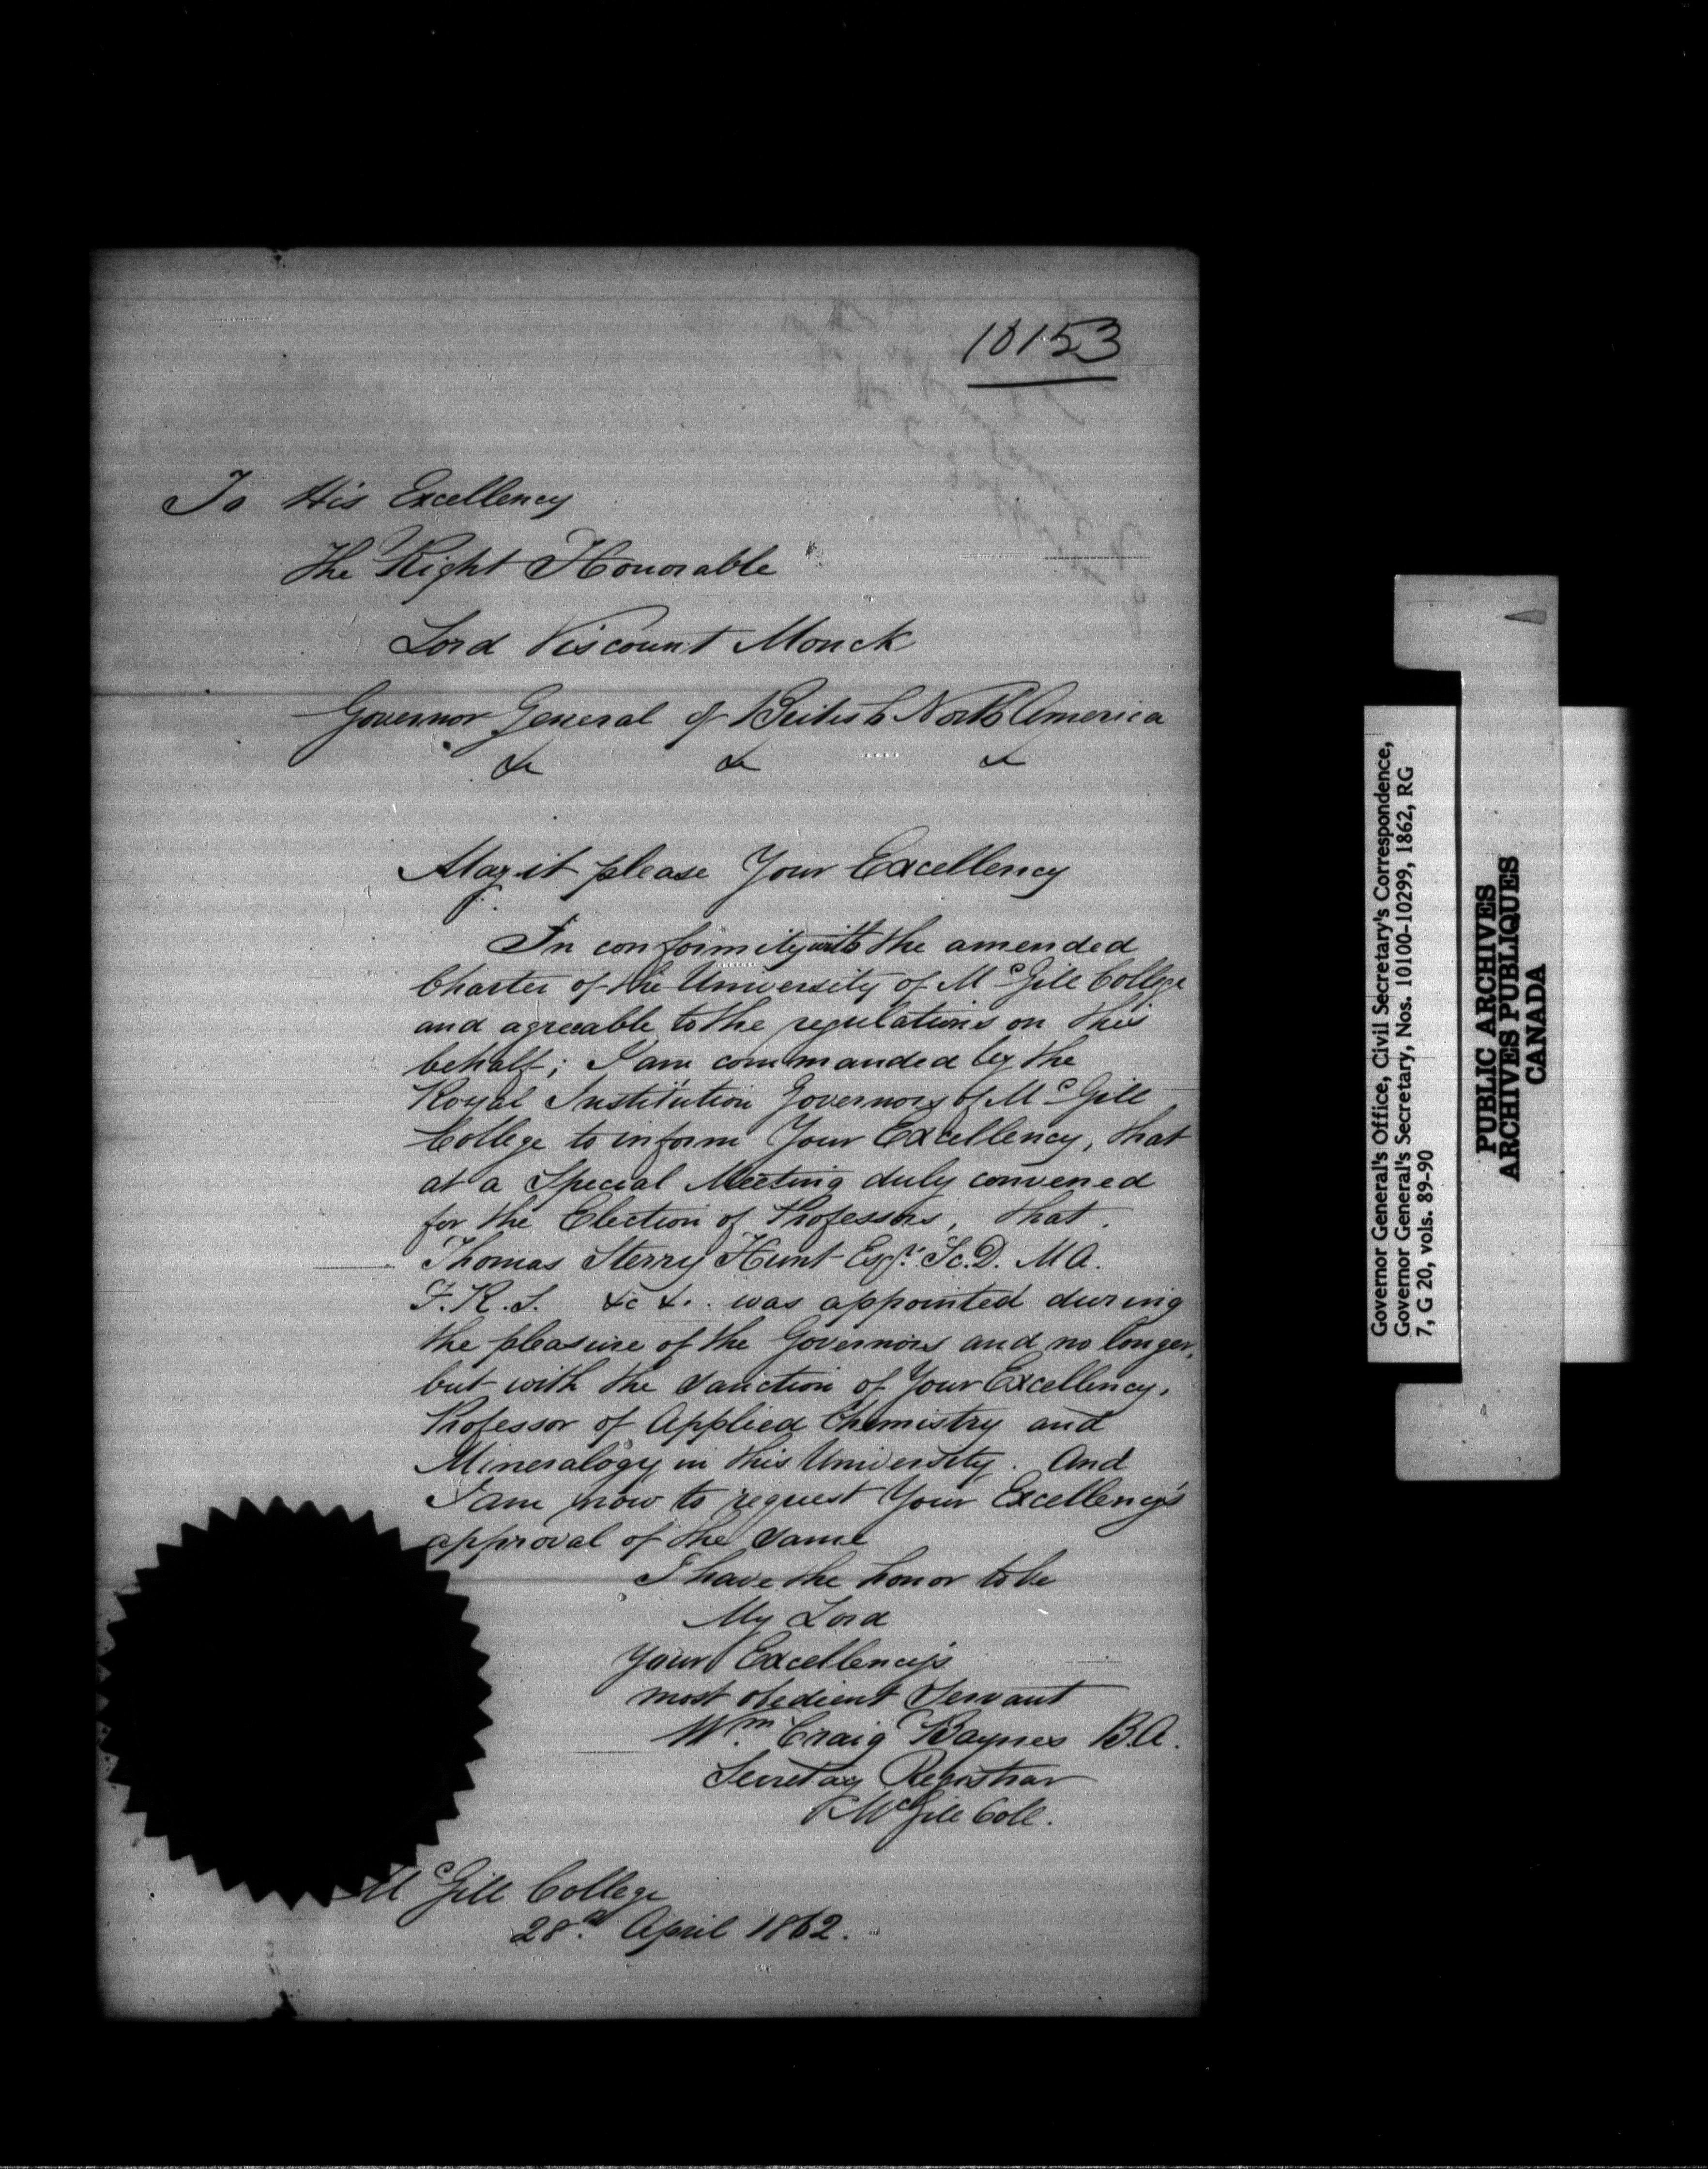 10153
To His Excellency
The Right Honorable
Lord Viscount Monck
Governor General of British North America
&c &c &c
May it please Your Excellency
In conformity with the amended
Charter of the University of McGill College
and agreeable to the regulations on this
behalf; I am commanded by the
Royal Institution Governors of McGill
College to inform Your Excellency, that
at a Special Meeting duly convened
for the Election of Professors, that
Thomas Sterry Hunt Esqr. Sc.D. M A.
F.R.S. &c &c. was appointed during
the pleasure of the Governors and no longer,
but with the sanction of Your Excellency,
Professor of Applied Chemistry and
Mineralogy in this University. And
I am now to request Your Excellency's
approval of the same
I have the honor to be
My Lord
Your Excellency's
most obedient Servant
Wm. Craig Baynes B.A.
Secretary Registrar
McGill Coll.
McGill College
28th April 1862.
Governor General's Office, Civil Secretary's Correspondence,
Governor General's Secretary, Nos. 10100-10299, 1862, RG
7, G 20, vols. 89-90
PUBLIC ARCHIVES
ARCHIVES PUBLIQUES
CANADA